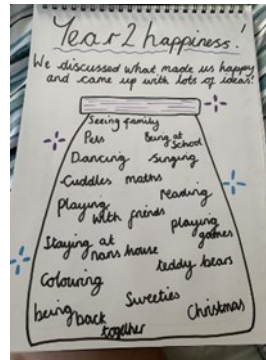 Year 2 happiness!
We discussed what made us happy
and came up with lots of ideas!
Seeing family
Pets
Being at
school
Dancing
singing
Cuddles
maths
reading
playing
with friends
playing
games
Staying at
nans house
teddy bears
Colouring
Sweeties
being
back
together
Christmas